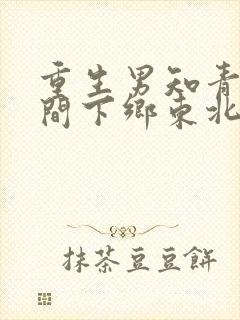 重生男知青
間下鄉東北
抹茶豆豆餅